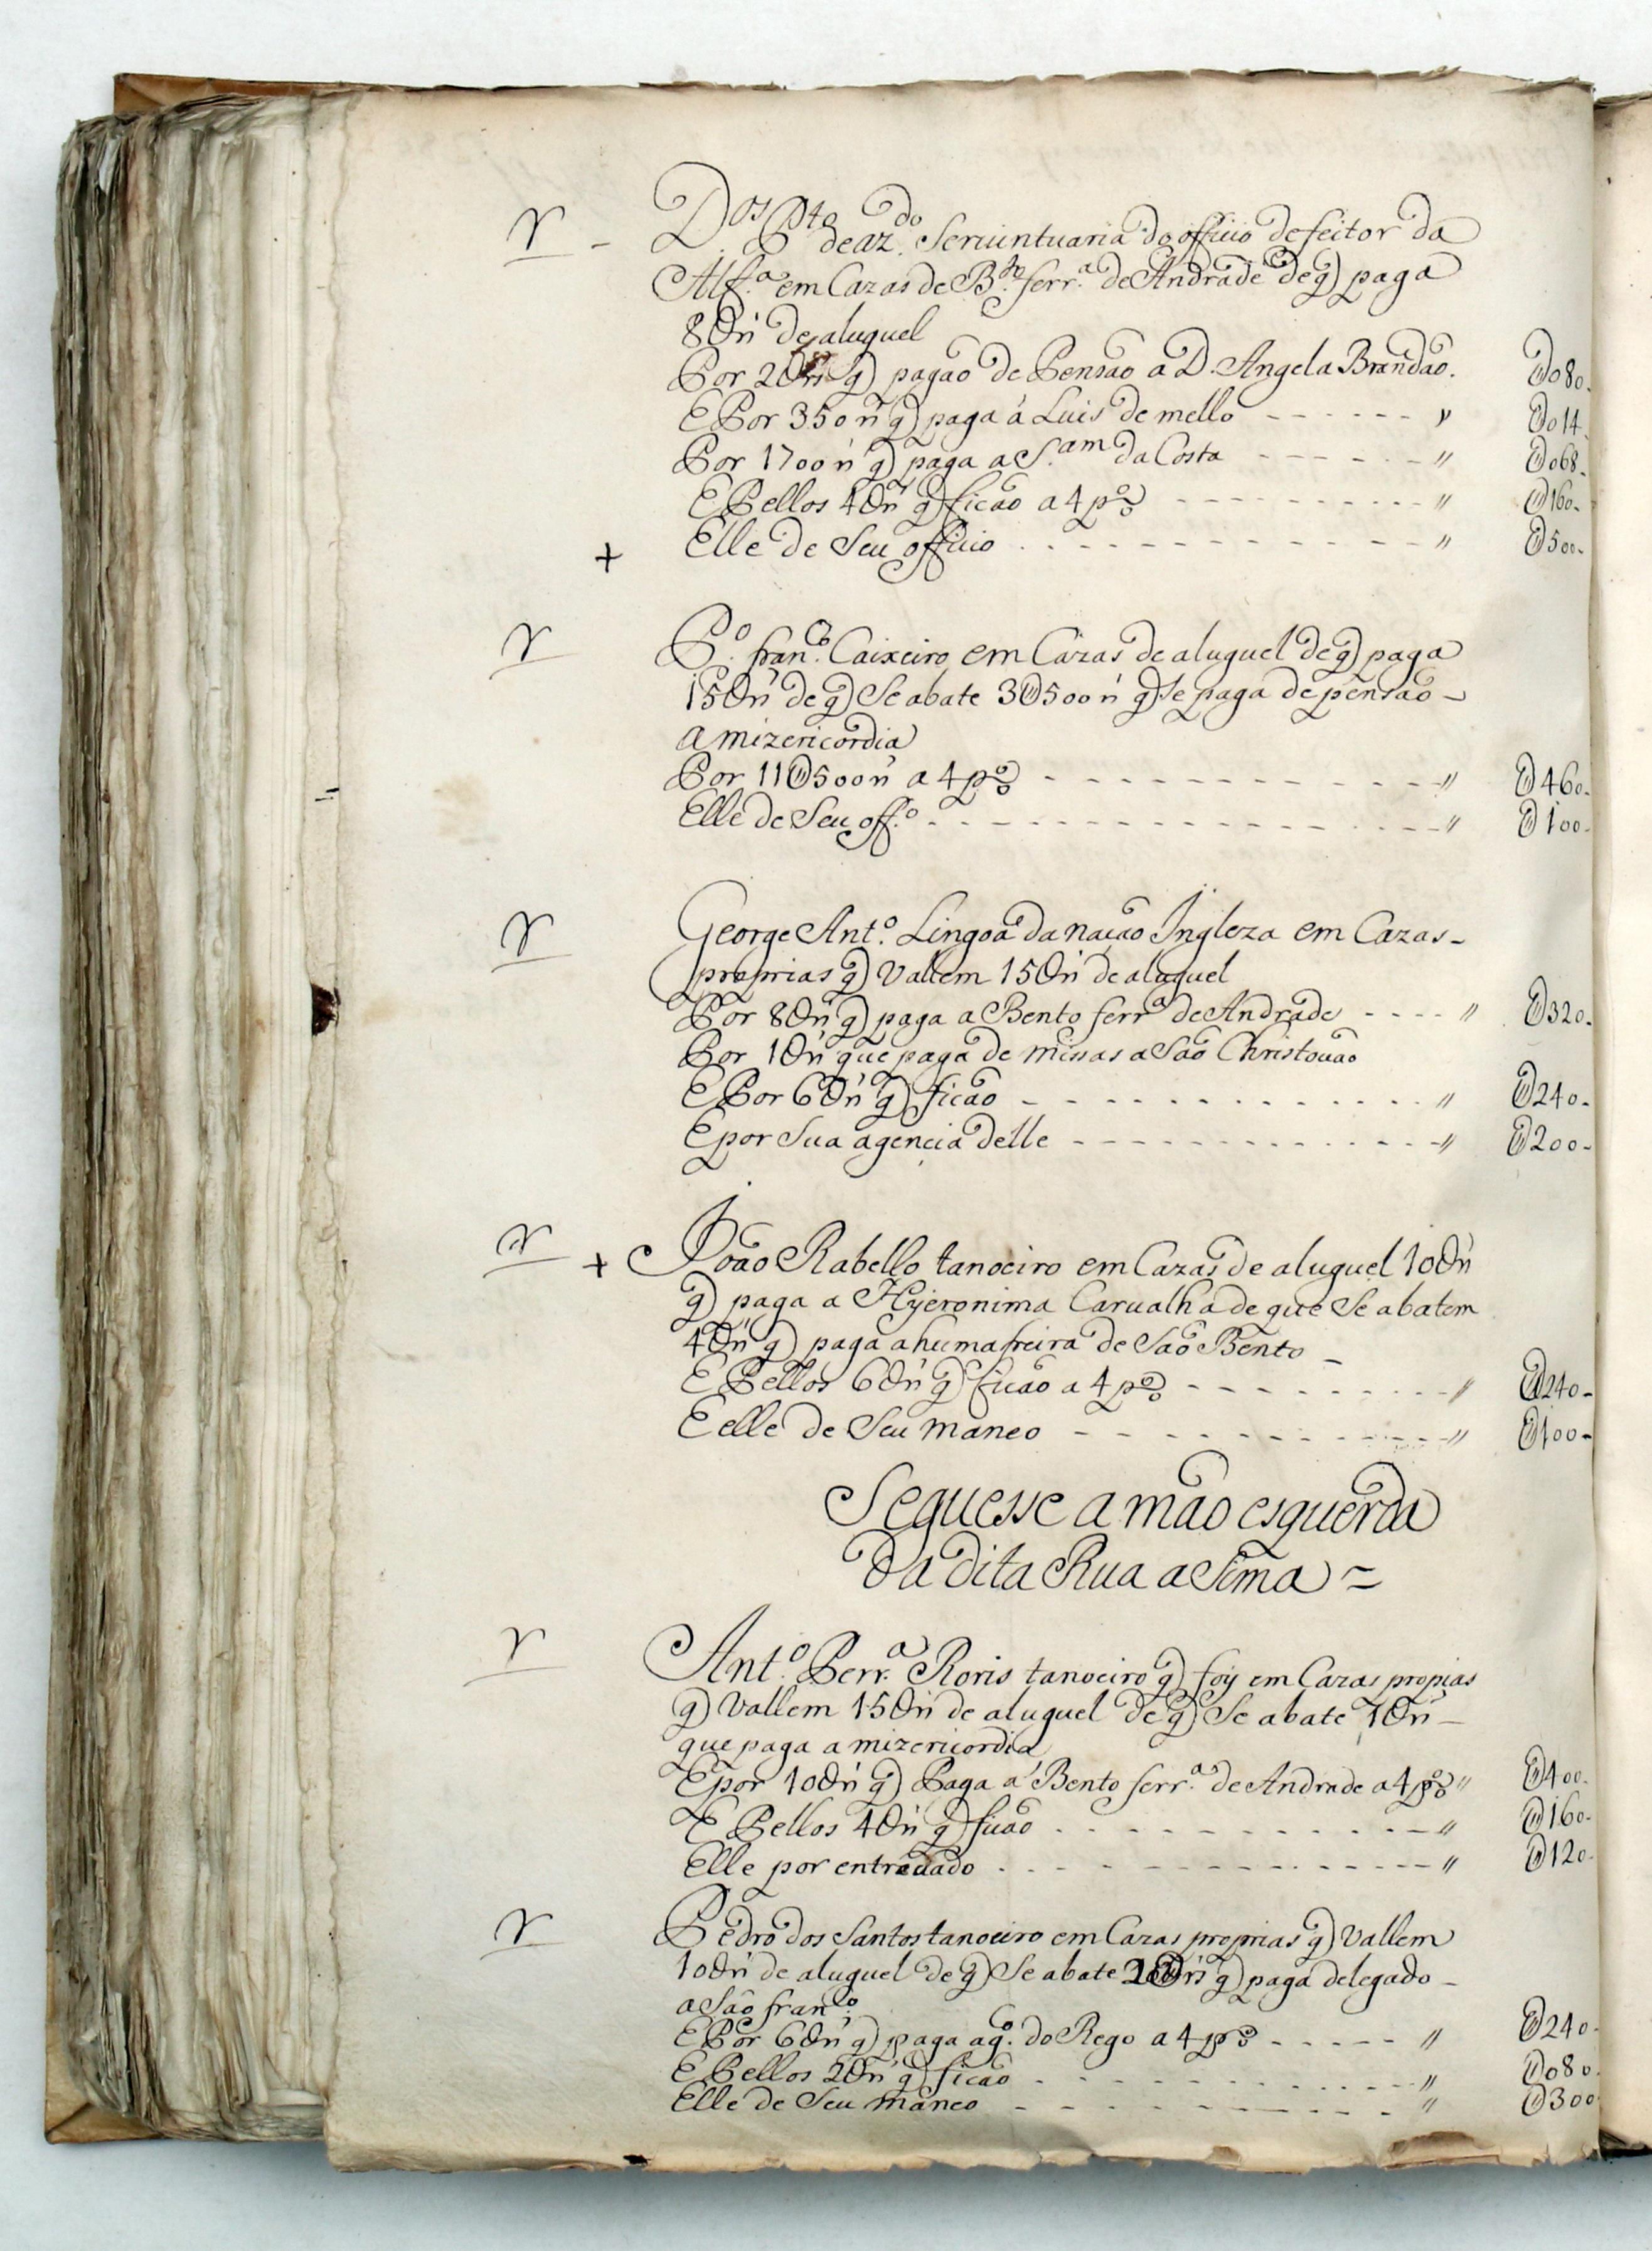 de az.do Seruintuaria do officio de feitor da
Alf.a em Cazas de B.to ferr.a de Andrade de q) paga
8U r.s de aluguel
Por 2U r.s q) pagao de Pensaõ a D. Angela Brandaõ. U080
E Por 350 r.s q) paga á Luis de mello U014
Por 1700 r.s q) paga a S.am da Costa U068
E Pellos 4U r.s q) ficaõ a 4 p%o U160
Elle de Seu officio U500
+
P.o fran.co Caixeiro em Cazas de aluguel de q) paga
15U r.s de q) Se abate 3U500 r.s q) Se paga de pensaõ
a mizericordia
Por 11U500 r.s a 4 p%o U460
Elle de Seu off.o U100
George Ant.o Lingoa da naçaõ Ingleza em Cazas
proprias q) Vallem 15U r.s de aluguel
Por 8U r.s q) paga a Bento ferr.a de Andrade U320
Por 1U r.s que paga de missas a Saõ Christouaõ
E Por 6U r.s q) ficaõ U240
E por Sua agencia delle U200
+ Joaõ Rabello tanoeiro em Cazas de aluguel 10U r.s
q) paga a Hyeronima Carualha de que Se abatem
4U r.s q) paga a huma freira de Saõ Bento
E Pellos 6U r.s q) ficaõ a 4 p%o U240
E elle de Seu maneo U100
Seguesse a maõ esquerda
da dita Rua a Sima =
Ant.o Perr.a Roris tanoeiro q) foy em Cazas propias
q) Vallem 15U r.s de aluguel de q) Se abate 1U r.s
que paga a mizericordia
E por 10U r.s q) Paga a Bento ferr.a de Andrade a 4 p%o U400
E Pellos 4U r.s q) ficaõ U160
Elle por entreuado U120
Pedro dos Santos tanoeiro em Cazas proprias q) Vallem
10U r.s de aluguel de q) Se abate 2U r.s q) paga de legado
a Saõ fran.co
E Por 6U r.s q) paga a g.o do Rego a 4 p%o U240
E Pellos 2U r.s q) ficaõ U080
Elle de Seu maneo U300